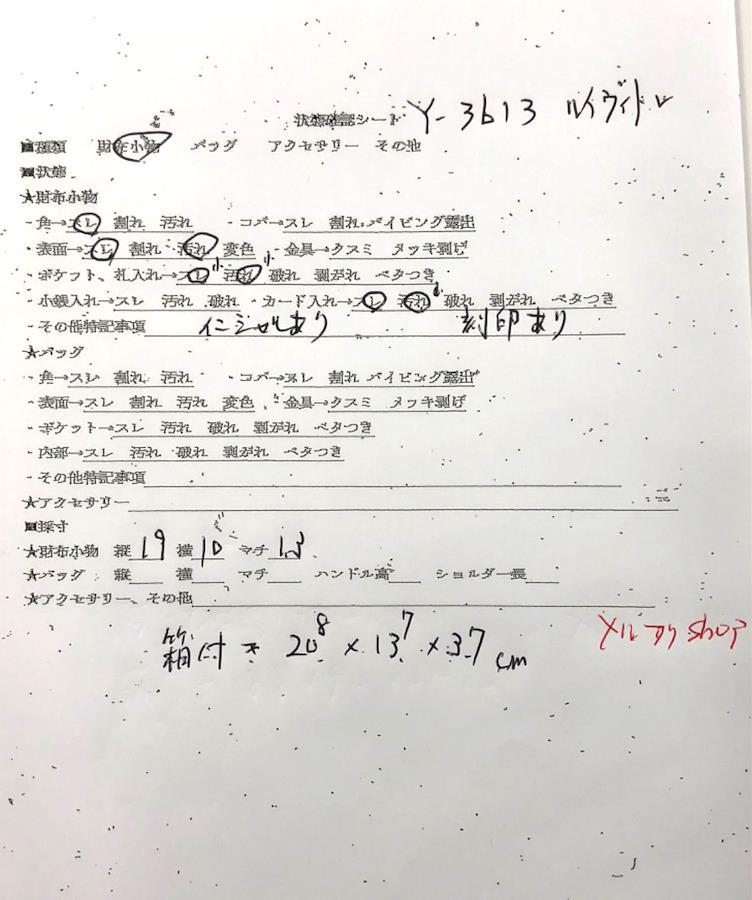 状態確認シート Y-3613 ルイヴィトン
■種類 財布小物 バッグ アクセサリー その他
■状態
★財布小物
・角→スレ 割れ 汚れ ・コバ→スレ 割れ パイピング露出
・表面→スレ 割れ 汚れ 変色 ・金具→クスミ メッキ剥げ
・ポケット、札入れ→スレ小 汚れ小 破れ 剥がれ ベタつき
・小銭入れ→スレ 汚れ 破れ ・カード入れ→スレ 汚れ 破れ 剥がれ ベタつき
・その他特記事項 イニシャルあり 刻印あり
★バッグ
・角→スレ 割れ 汚れ ・コバ→スレ 割れ パイピング露出
・表面→スレ 割れ 汚れ 変色 ・金具→クスミ メッキ剥げ
・ポケット→スレ 汚れ 破れ 剥がれ ベタつき
・内部→スレ 汚れ 破れ 剥がれ ベタつき
・その他特記事項
★アクセサリー
■採寸
★財布小物 縦 19 横 10 マチ
★バッグ 縦 横 マチ ハンドル高 ショルダー長
★アクセサリー、その他
箱付き 20.8×13.7×3.7cm
メルカリshop